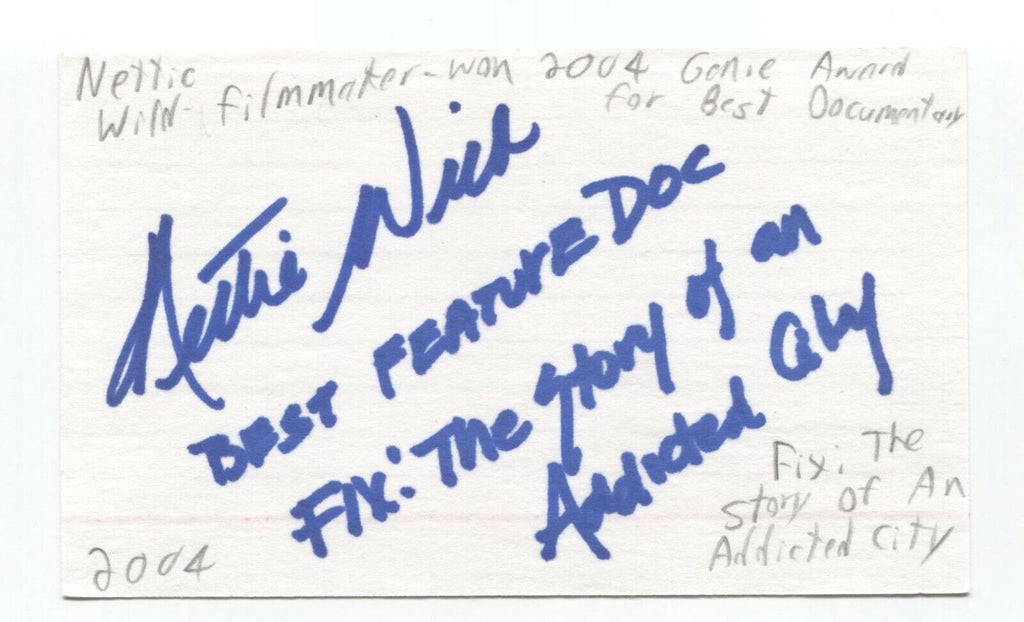 Nettie
Wild - filmmaker - won 2004 Genie Award
for Best Documentary
Nettie Wild
BEST FEATURE DOC
FIX: The Story of an
Addicted City
Fix: The
Story of An
Addicted City
2004